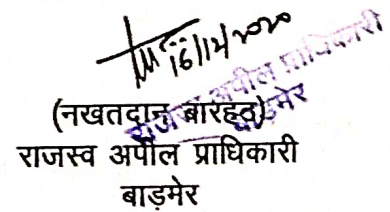 16/12/2020
राजस्व अपील प्राधिकारी
बाड़मेर
(नखतदान बारहठ)
राजस्व अपील प्राधिकारी
बाड़मेर